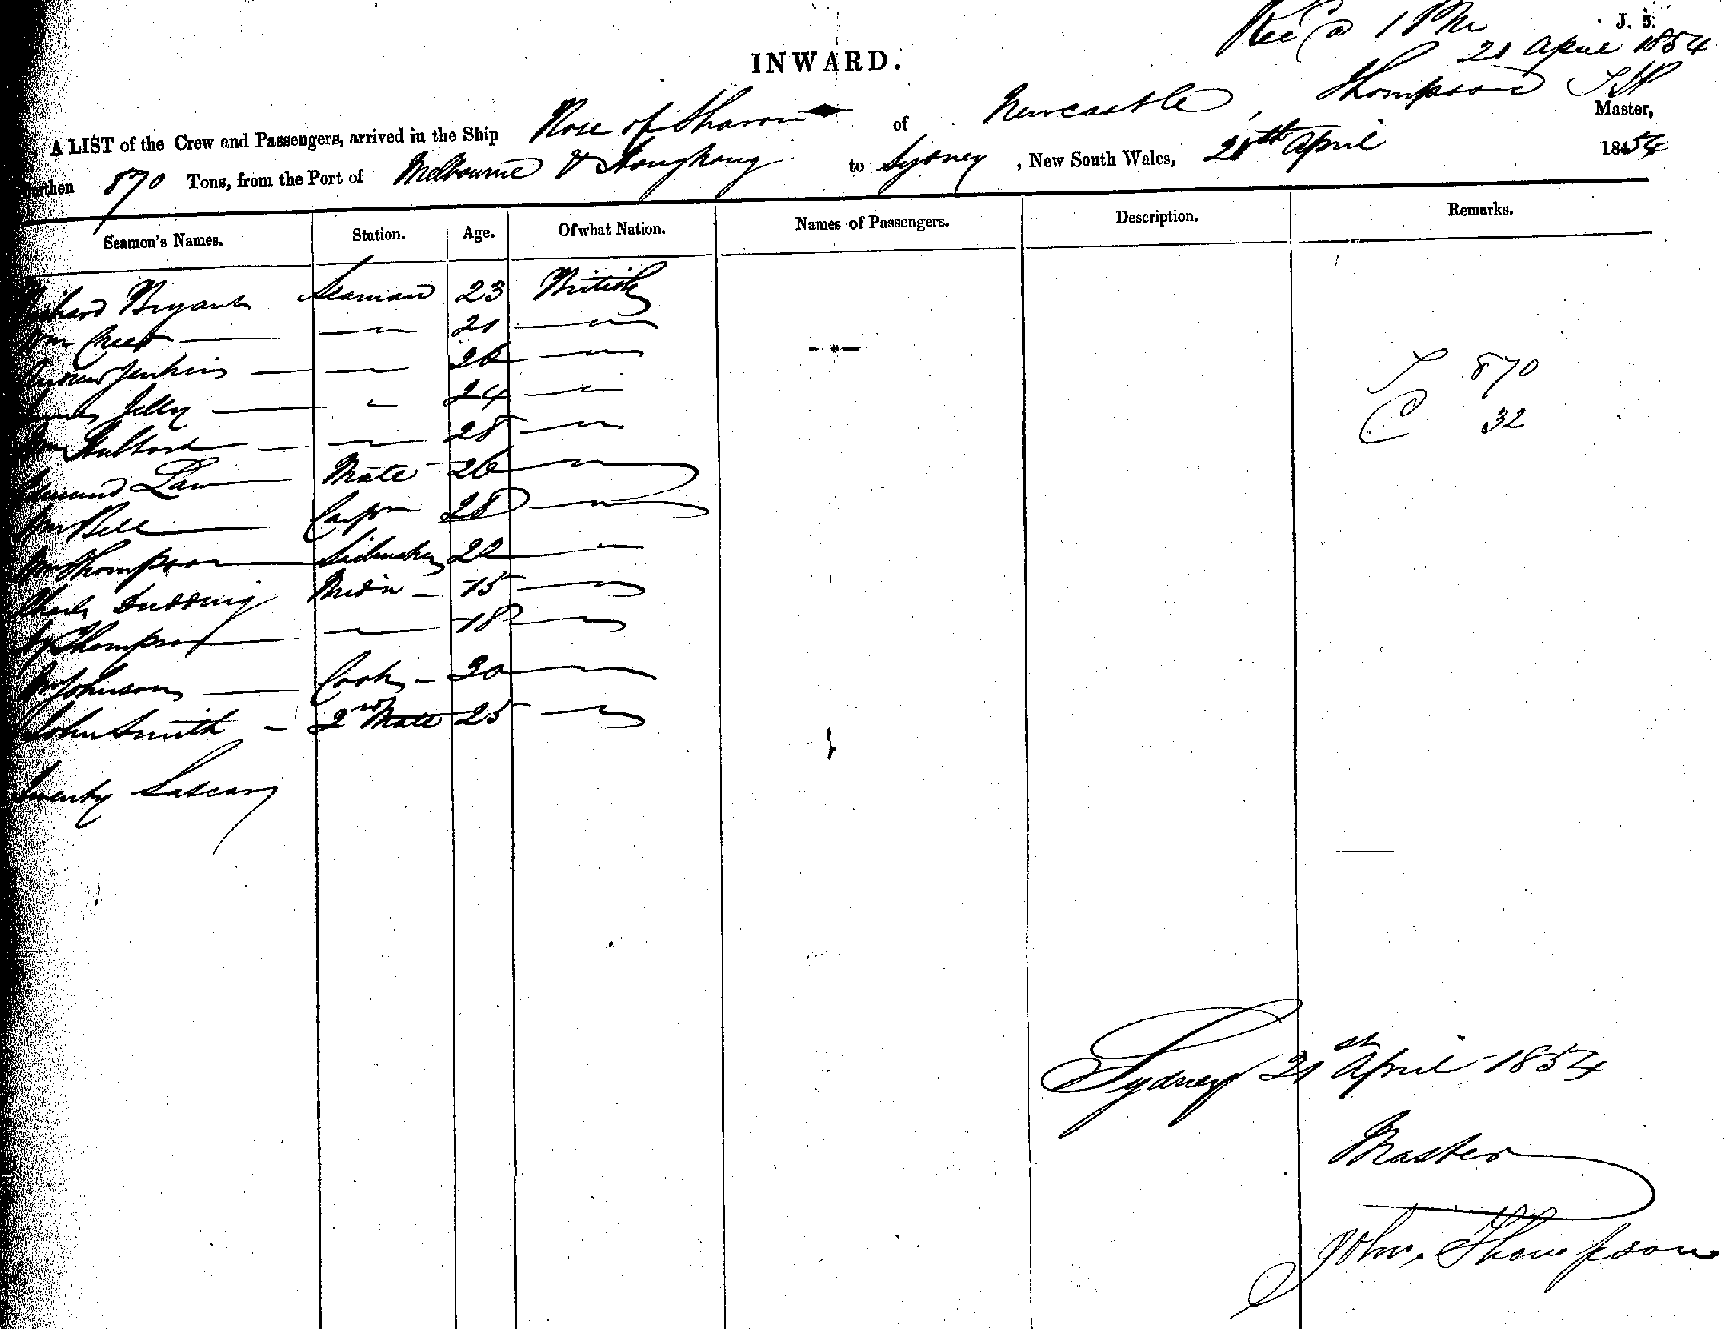 J. 5.
Rec'd 1 PM
21 April 1854
INWARD.
A LIST of the Crew and Passengers, arrived in the Ship Rose of Sharon of Newcastle, Thompson Master,
Burthen 870 Tons, from the Port of Melbourne & Hongkong to Sydney, New South Wales, 21st April 1854
Seamen's Names. Station. Age. Of what Nation. Names of Passengers. Description. Remarks.
Richard Bryant Seaman 23 British
Wm 21
Andrew Jenkins 26
T 870
James Jelly 24
C 32
Wm 28
Edmund Law Mate 26
Wm Bell Carpr 28
Wm Thompson 22
Charles Midn 15
Thompson 18
Wm Johnson Cook 30
John Smith 2nd Mate 25
Twenty Lascars
Sydney 21st April 1854
Master
John Thompson